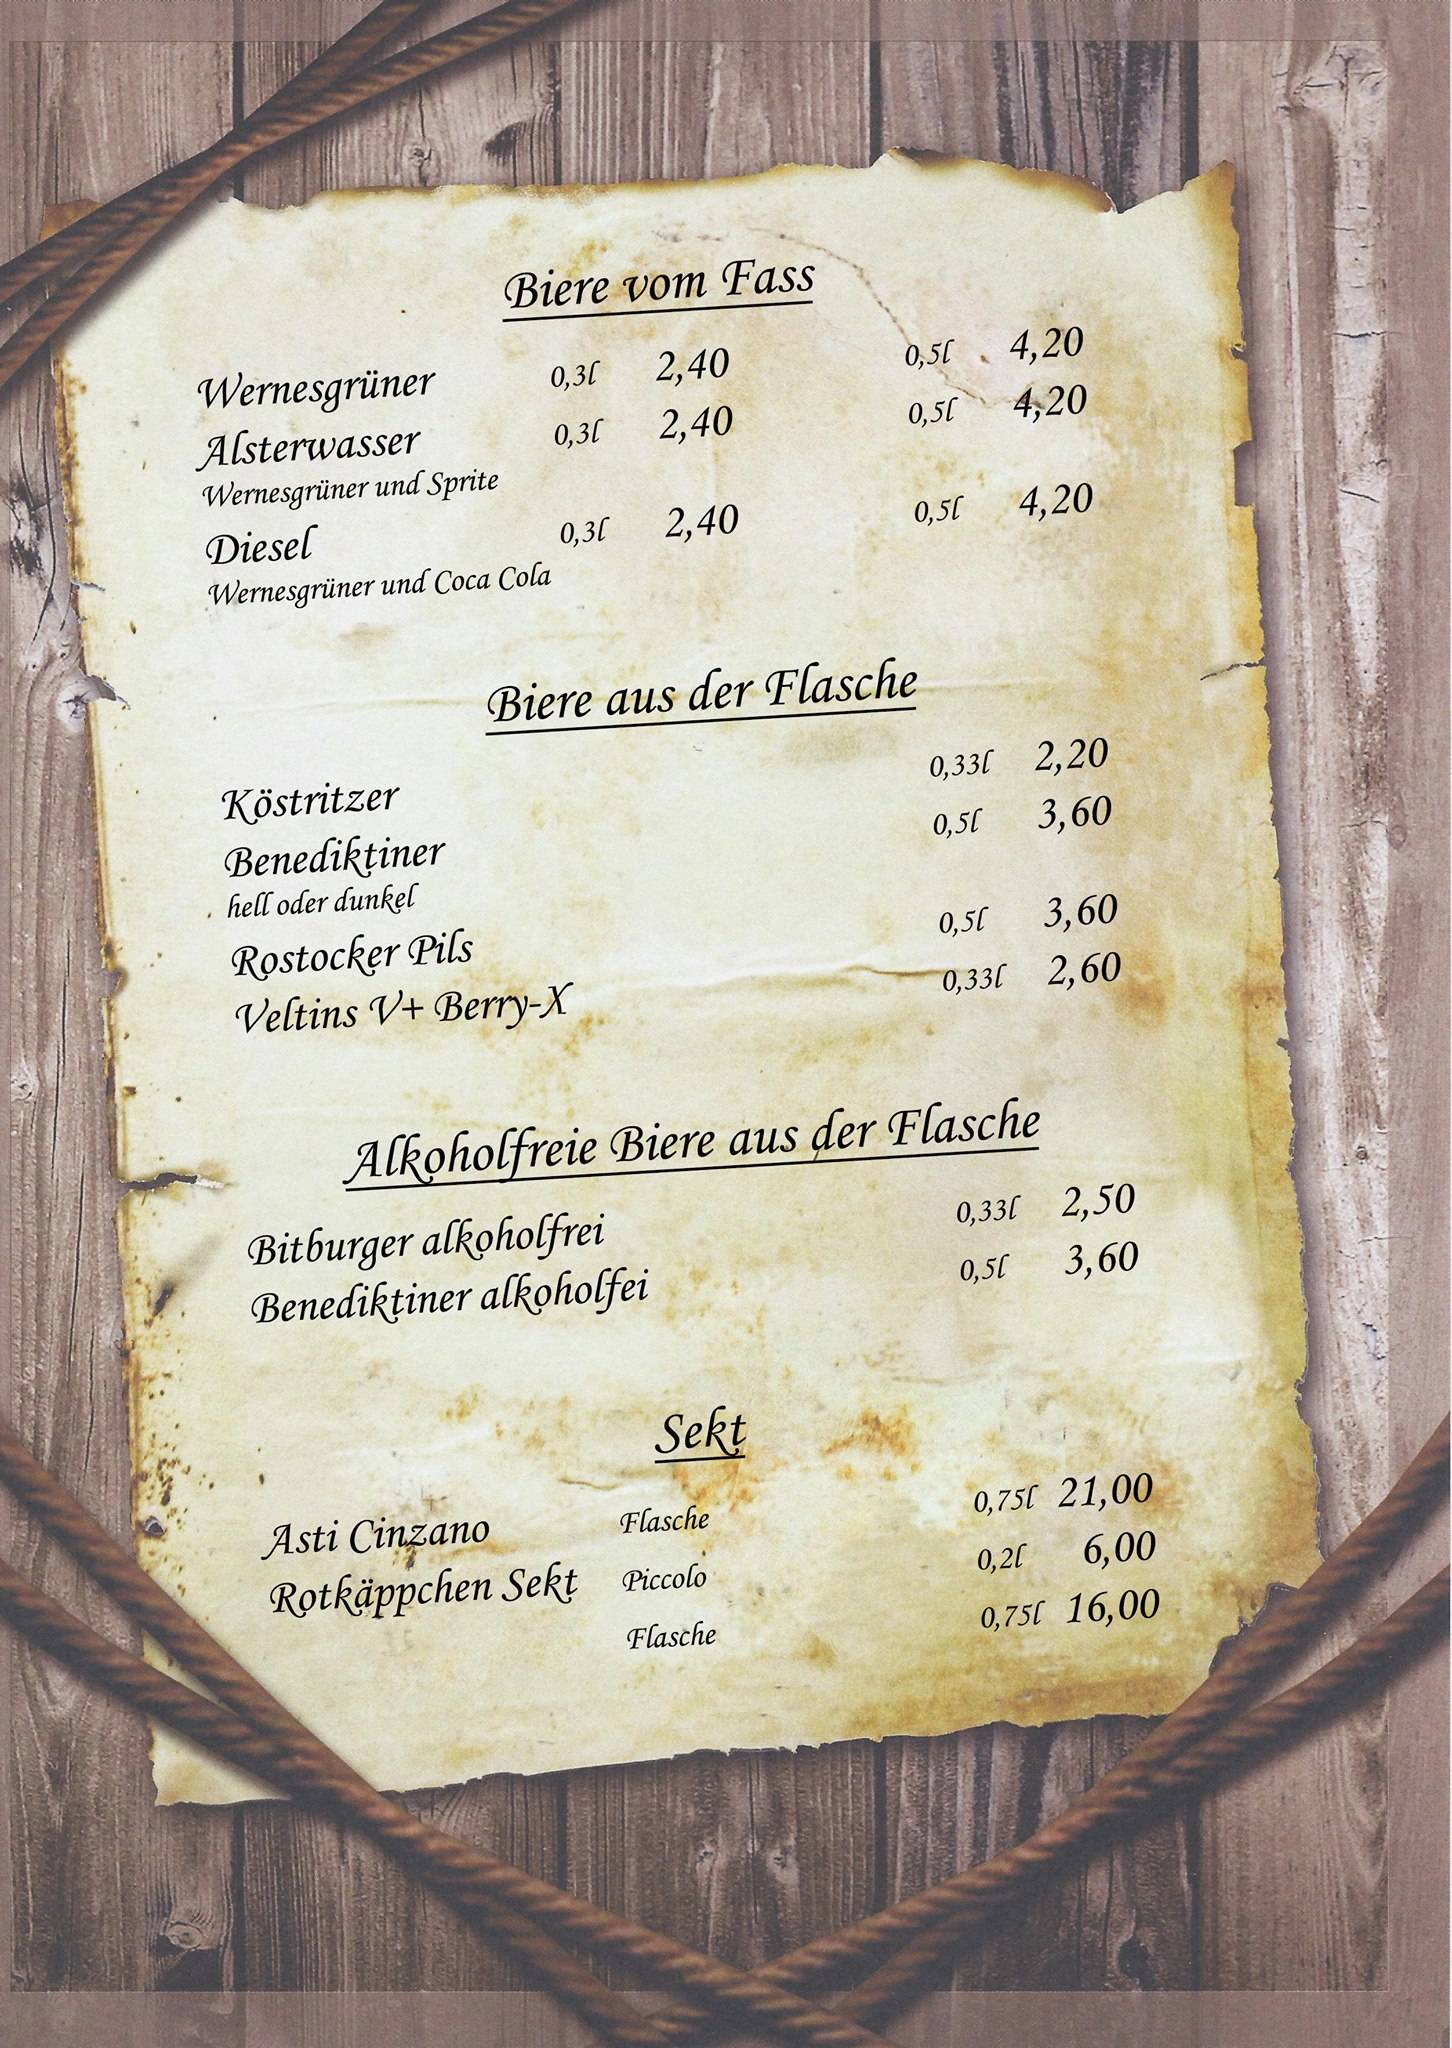 Biere vom Fass
Wernesgrüner 0,3l 2,40 0,5l 4,20
Alsterwasser 0,3l 2,40 0,5l 4,20
Wernesgrüner und Sprite
Diesel 0,3l 2,40 0,5l 4,20
Wernesgrüner und Coca Cola
Biere aus der Flasche
Köstritzer 0,33l 2,20
Benediktiner 0,5l 3,60
hell oder dunkel
Rostocker Pils 0,5l 3,60
Veltins V+ Berry-X 0,33l 2,60
Alkoholfreie Biere aus der Flasche
Bitburger alkoholfrei 0,33l 2,50
Benediktiner alkoholfei 0,5l 3,60
Sekt
Asti Cinzano Flasche 0,75l 21,00
Rotkäppchen Sekt Piccolo 0,2l 6,00
Flasche 0,75l 16,00